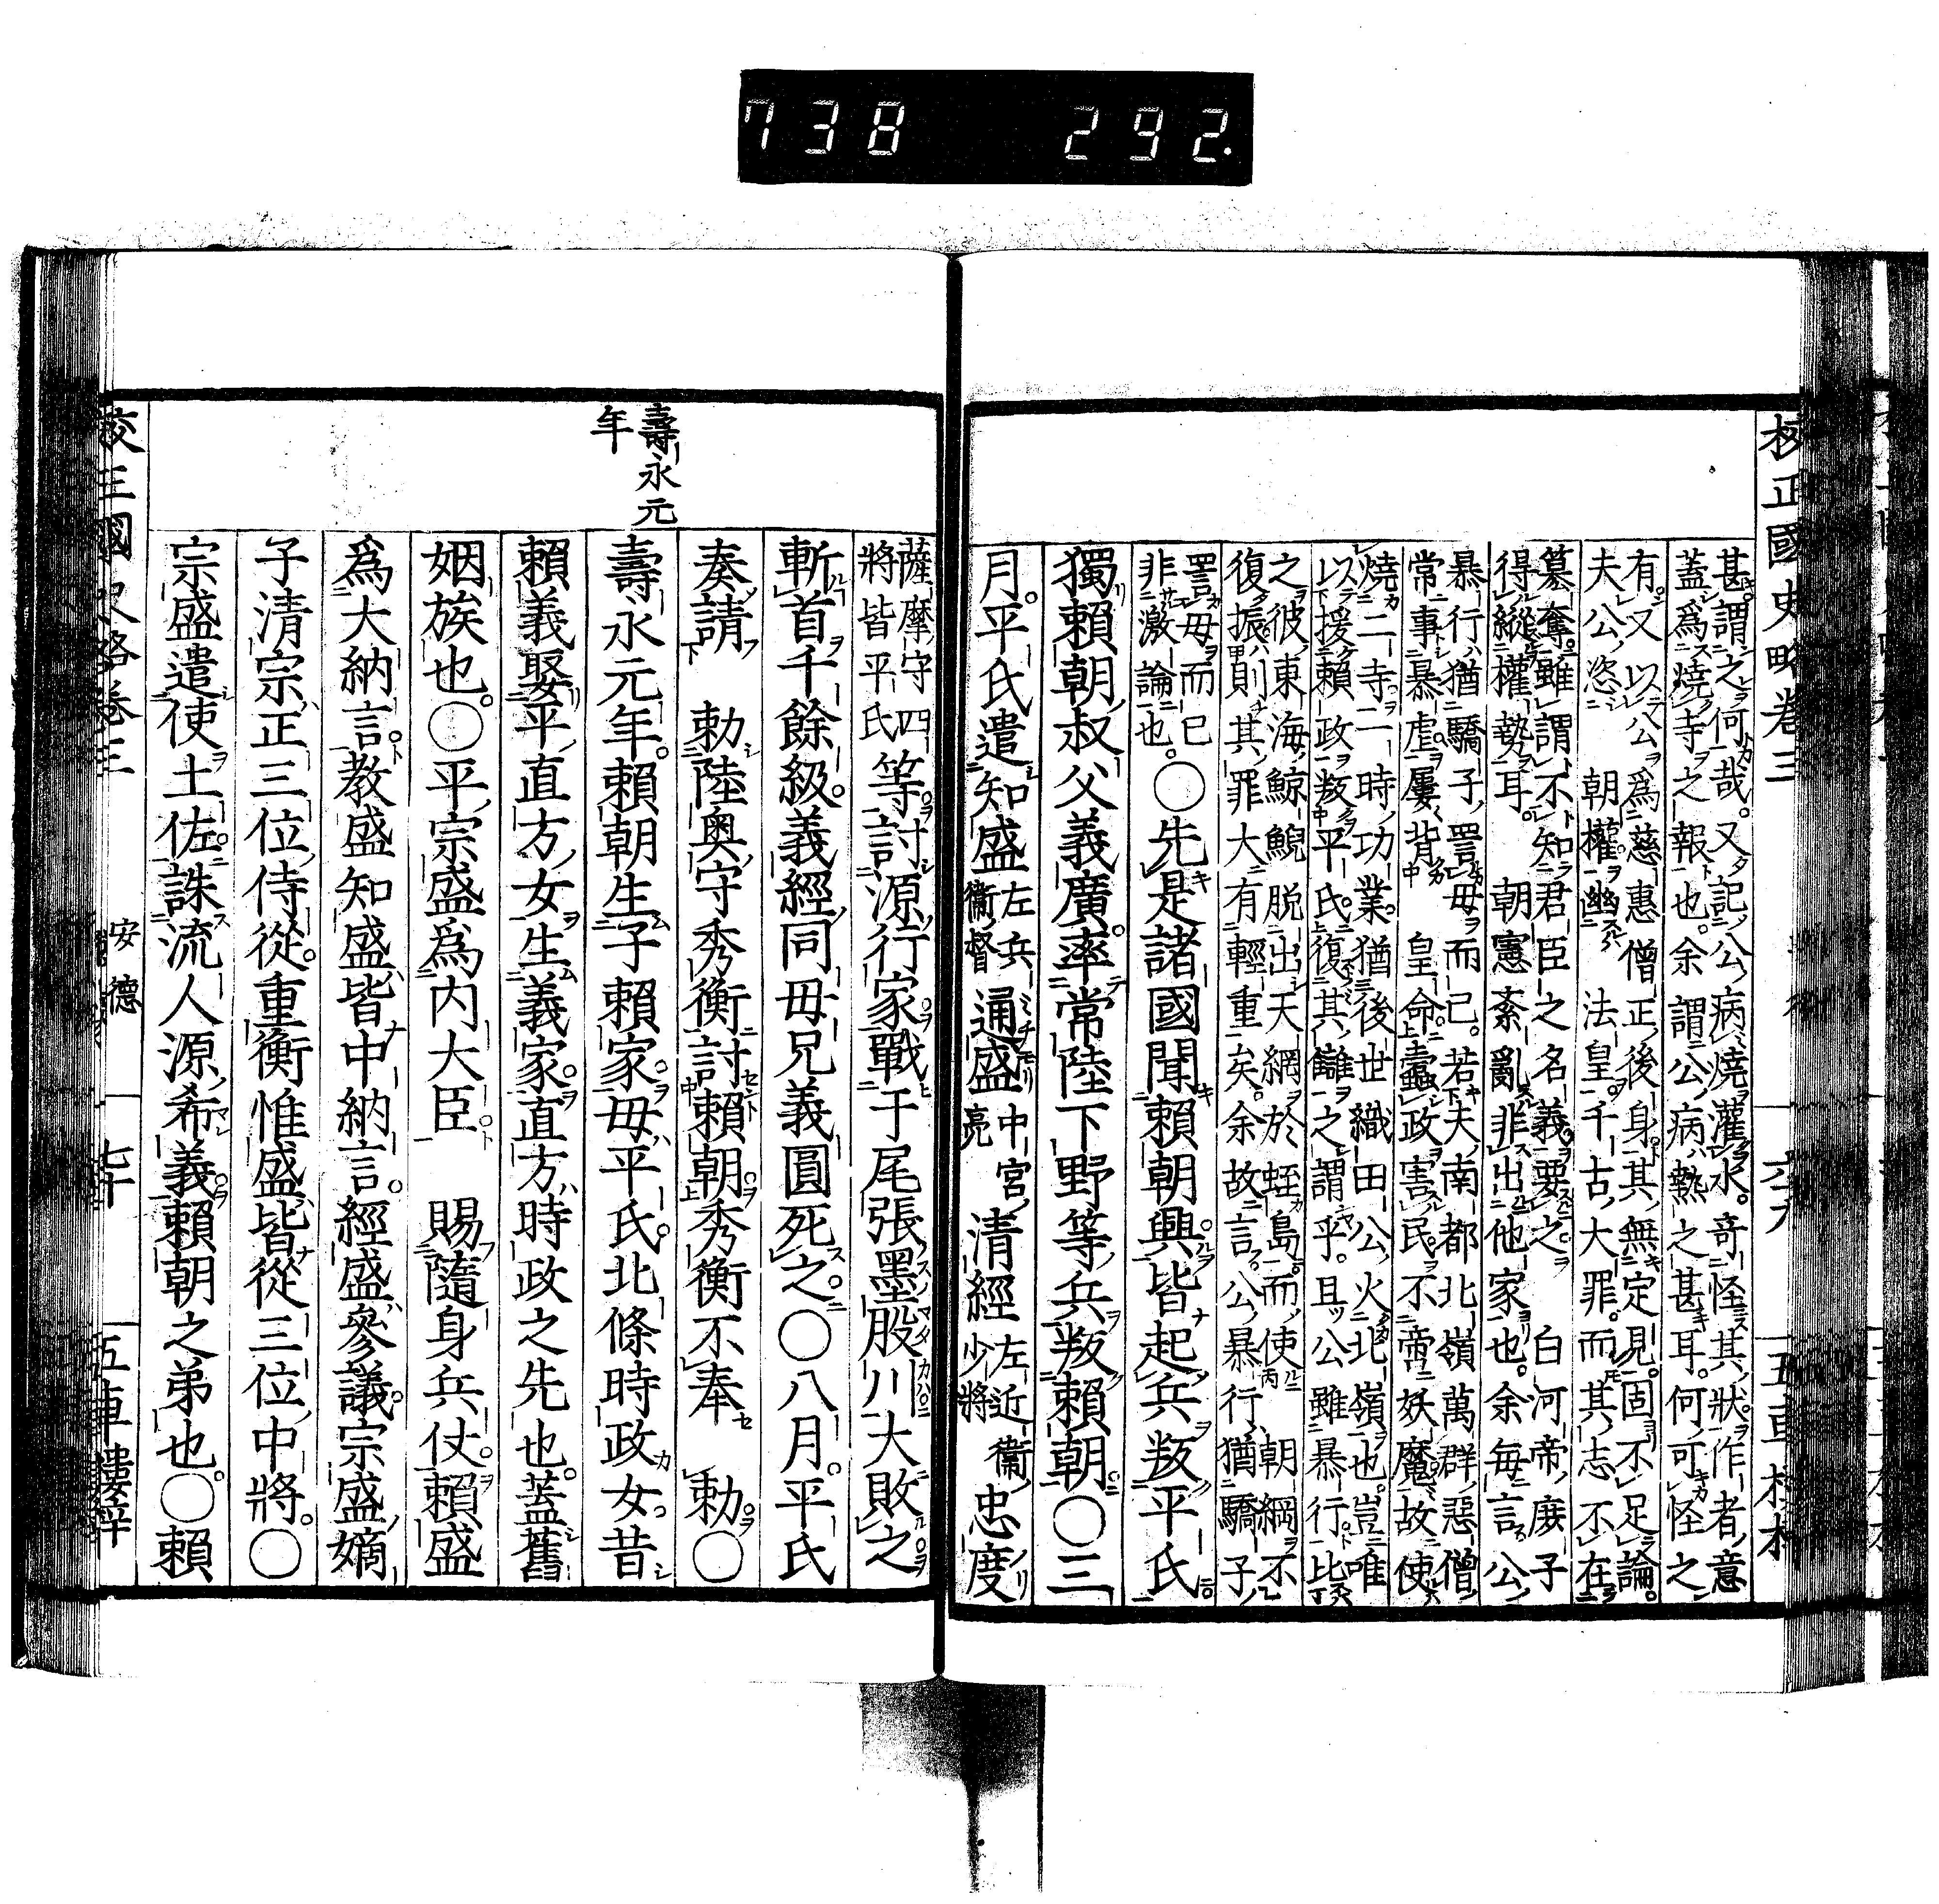 738 292.
校正國史略卷三 六十九 五車樓梓
甚謂之何哉又記公病燒灌水奇怪其狀作者意
蓋爲燒寺之報也余謂公病熱之甚耳何可怪之
有又以公爲慈惠僧正後身其無定見固不足論
夫公恣 朝權幽 法皇千古大罪而其志不在
篡奪雖謂不知君臣之名義要之 白河帝廢子
得縱權勢耳 朝憲紊亂非出他家也余每言公
暴行猶驕子詈母而已若夫南都北嶺萬群惡僧
常事暴虐屢背 皇命蠹政害民不啻妖魔故使
燒二寺二一時功業猶後世織田公火北嶺也豈唯
以援賴政叛平氏復其讎之謂乎且公雖暴行比
之彼東海鯨鯢脱出天網於蛭島而使 朝綱不
復振則其罪大有輕重矣余故言公暴行猶驕子
詈母而已
非激論也〇先是諸國聞賴朝興皆起兵叛平氏
獨賴朝叔父義廣率常陸下野等兵叛賴朝〇三
月平氏遣知盛左兵衞督通盛中宮亮清經左近衞少將忠度
薩摩守四
將皆平氏等討源行家戰于尾張墨股川大敗之
斬首千餘級義經同母兄義圓死之〇八月平氏
奏請 勅陸奧守秀衡討賴朝秀衡不奉 勅〇
壽永元年
壽永元年賴朝生子賴家母平氏北條時政女昔
賴義娶平直方女生義家直方時政之先也蓋舊
姻族也〇平宗盛爲内大臣 賜隨身兵仗賴盛
爲大納言教盛知盛皆中納言經盛參議宗盛嫡
子清宗正三位侍從重衡惟盛皆從三位中將〇
宗盛遣使土佐誅流人源希義賴朝之弟也〇賴
校正國史略卷三 安德 七十 五車樓梓